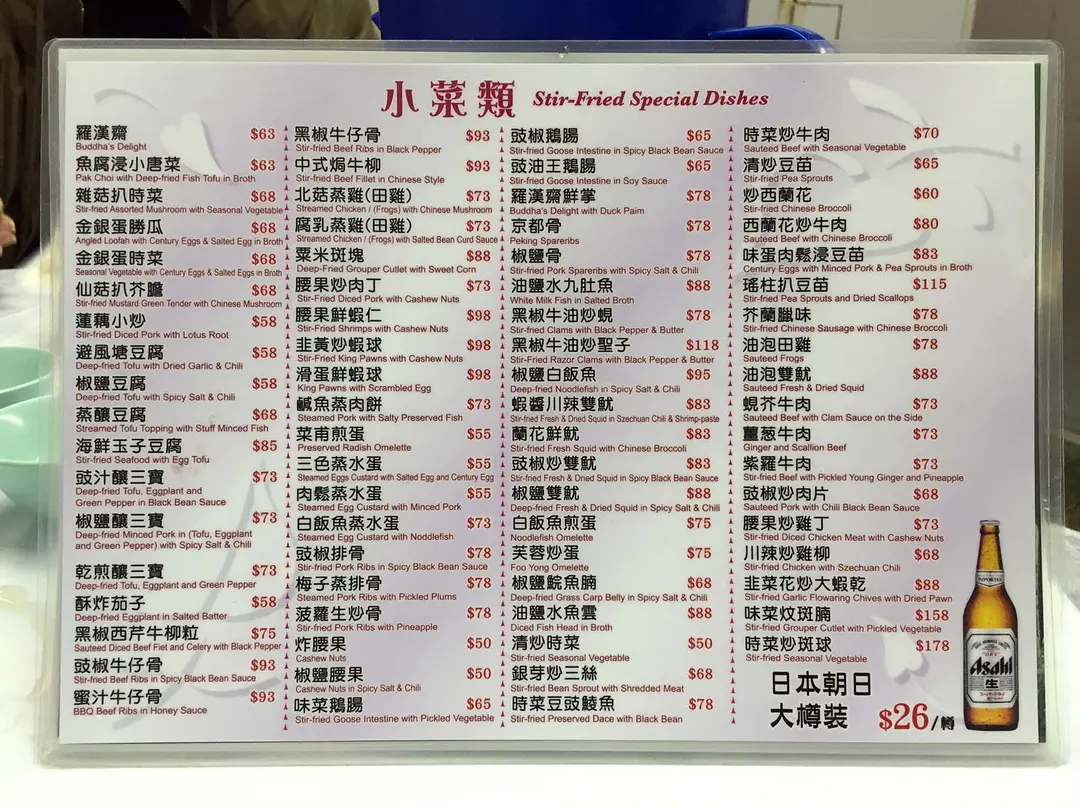 小菜類 Stir-Fried Special Dishes
羅漢齋 $63
Buddha's Delight
魚腐浸小唐菜 $63
Pak Choi with Deep-fried Fish Tofu in Broth
雜菇扒時菜 $68
Stir-fried Assorted Mushroom with Seasonal Vegetable
金銀蛋勝瓜 $68
Angled Loofah with Century Eggs & Salted Egg in Broth
金銀蛋時菜 $68
Seasonal Vegetable with Century Eggs & Salted Eggs in Broth
仙菇扒芥膽 $68
Stir-fried Mustard Green Tender with Chinese Mushroom
蓮藕小炒 $58
Stir-fried Diced Pork with Lotus Root
避風塘豆腐 $58
Deep-fried Tofu with Dried Garlic & Chili
椒鹽豆腐 $58
Deep-fried Tofu with Spicy Salt & Chili
蒸釀豆腐 $68
Streamed Tofu Topping with Stuff Minced Fish
海鮮玉子豆腐 $85
Stir-fried Seafood with Egg Tofu
豉汁釀三寶 $73
Deep-fried Tofu, Eggplant and
Green Pepper in Black Bean Sauce
椒鹽釀三寶 $73
Deep-fried Minced Pork in (Tofu, Eggplant
and Green Pepper) with Spicy Salt & Chili
乾煎釀三寶 $73
Deep-fried Tofu, Eggplant and Green Pepper
酥炸茄子 $58
Deep-fried Eggplant in Salted Batter
黑椒西芹牛柳粒 $75
Sauteed Diced Beef Fiet and Celery with Black Pepper
豉椒牛仔骨 $93
Stir-fried Beef Ribs in Spicy Black Bean Sauce
蜜汁牛仔骨 $93
BBQ Beef Ribs in Honey Sauce
黑椒牛仔骨 $93
Stir-fried Beef Ribs in Black Pepper
中式焗牛柳 $93
Stir-fried Beef Fillet in Chinese Style
北菇蒸雞(田雞) $73
Streamed Chicken / (Frogs) with Chinese Mushroom
腐乳蒸雞(田雞) $73
Streamed Chicken / (Frogs) with Salted Bean Curd Sauce
粟米斑塊 $88
Deep-Fried Grouper Cutlet with Sweet Corn
腰果炒肉丁 $73
Stir-Fried Diced Pork with Cashew Nuts
腰果鮮蝦仁 $98
Stir-Fried Shrimps with Cashew Nuts
韭黃炒蝦球 $98
Stir-Fried King Pawns with Cashew Nuts
滑蛋鮮蝦球 $98
King Pawns with Scrambled Egg
鹹魚蒸肉餅 $73
Steamed Pork with Salty Preserved Fish
菜甫煎蛋 $55
Preserved Radish Omelette
三色蒸水蛋 $55
Steamed Eggs Custard with Salted Egg and Century Egg
肉鬆蒸水蛋 $55
Steamed Egg Custard with Minced Pork
白飯魚蒸水蛋 $73
Steamed Egg Custard with Noddlefish
豉椒排骨 $78
Stir-fried Pork Ribs in Spicy Black Bean Sauce
梅子蒸排骨 $78
Steamed Pork Ribs with Pickled Plums
菠蘿生炒骨 $78
Stir-fried Pork Ribs with Pineapple
炸腰果 $50
Cashew Nuts
椒鹽腰果 $50
Cashew Nuts in Spicy Salt & Chili
味菜鵝腸 $65
Stir-fried Goose Intestine with Pickled Vegetable
豉椒鵝腸 $65
Stir-fried Goose Intestine in Spicy Black Bean Sauce
豉油王鵝腸 $65
Stir-fried Goose Intestine in Soy Sauce
羅漢齋鮮掌 $78
Buddha's Delight with Duck Paim
京都骨 $78
Peking Spareribs
椒鹽骨 $78
Stir-fried Pork Spareribs with Spicy Salt & Chili
油鹽水九肚魚 $88
White Milk Fish in Salted Broth
黑椒牛油炒蜆 $78
Stir-fried Clams with Black Pepper & Butter
黑椒牛油炒聖子 $118
Stir-Fried Razor Clams with Black Pepper & Butter
椒鹽白飯魚 $95
Deep-fried Noodlefish in Spicy Salt & Chili
蝦醬川辣雙魷 $83
Stir-fried Fresh & Dried Squid in Szechuan Chili & Shrimp-paste
蘭花鮮魷 $83
Stir-fried Fresh Squid with Chinese Broccoli
豉椒炒雙魷 $83
Stir-fried Fresh & Dried Squid in Spicy Black Bean Sauce
椒鹽雙魷 $88
Deep-fried Fresh & Dried Squid in Spicy Salt & Chili
白飯魚煎蛋 $75
Noodlefish Omelette
芙蓉炒蛋 $75
Foo Yong Omelette
椒鹽鯇魚腩 $68
Deep-fried Grass Carp Belly in Spicy Salt & Chili
油鹽水魚雲 $88
Diced Fish Head in Broth
清炒時菜 $50
Stir-fried Seasonal Vegetable
銀芽炒三絲 $68
Stir-fried Bean Sprout with Shredded Meat
時菜豆豉鯪魚 $78
Stir-fried Preserved Dace with Black Bean
時菜炒牛肉 $70
Sauteed Beef with Seasonal Vegetable
清炒豆苗 $65
Stir-fried Pea Sprouts
炒西蘭花 $60
Stir-fried Chinese Broccoli
西蘭花炒牛肉 $80
Sauteed Beef with Chinese Broccoli
味蛋肉鬆浸豆苗 $83
Century Eggs with Minced Pork & Pea Sprouts in Broth
瑤柱扒豆苗 $115
Stir-fried Pea Sprouts and Dried Scallops
芥蘭臘味 $78
Stir-fried Chinese Sausage with Chinese Broccoli
油泡田雞 $78
Sauteed Frogs
油泡雙魷 $88
Sauteed Fresh & Dried Squid
蜆芥牛肉 $73
Sauteed Beef with Clam Sauce on the Side
薑葱牛肉 $73
Ginger and Scallion Beef
紫羅牛肉 $73
Stir-fried Beef with Pickled Young Ginger and Pineapple
豉椒炒肉片 $68
Sauteed Pork with Chili Black Bean Sauce
腰果炒雞丁 $73
Stir-fried Diced Chicken Meat with Cashew Nuts
川辣炒雞柳 $68
Stir-fried Chicken with Szechuan Chili
韭菜花炒大蝦乾 $88
Stir-fried Garlic Flowaring Chives with Dried Pawn
味菜炆斑腩 $158
Stir-fried Grouper Cutlet with Pickled Vegetable
時菜炒斑球 $178
Stir-fried Seasonal Vegetable
日本朝日
大樽裝 $26/樽
Asahi
生